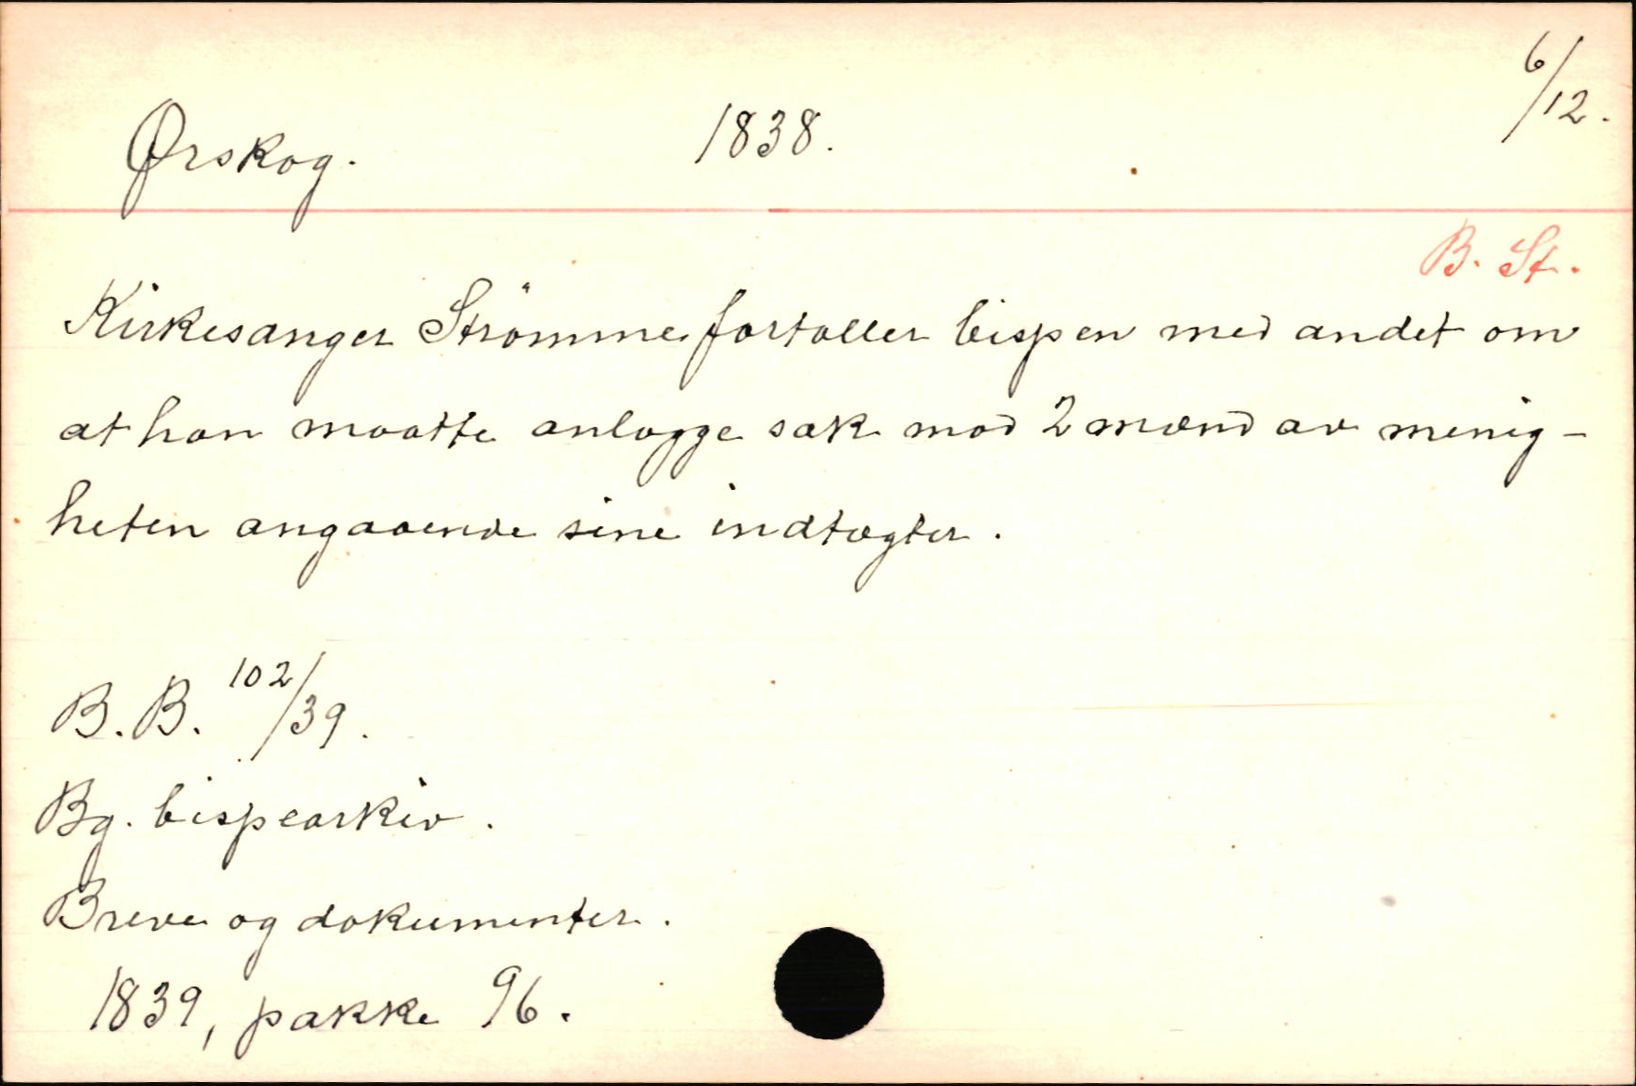 6/12.
Ørskog. 1838.
B. St.
Kirkesanger Strömme fortæller bispen med andet om
at han maatte anlægge sak mod 2 mænd av menig-
heten angaaende sine indtægter.
B. B. 102/39.
Bg. bispearkiv.
Breve og dokumenter.
1839, pakke 96.